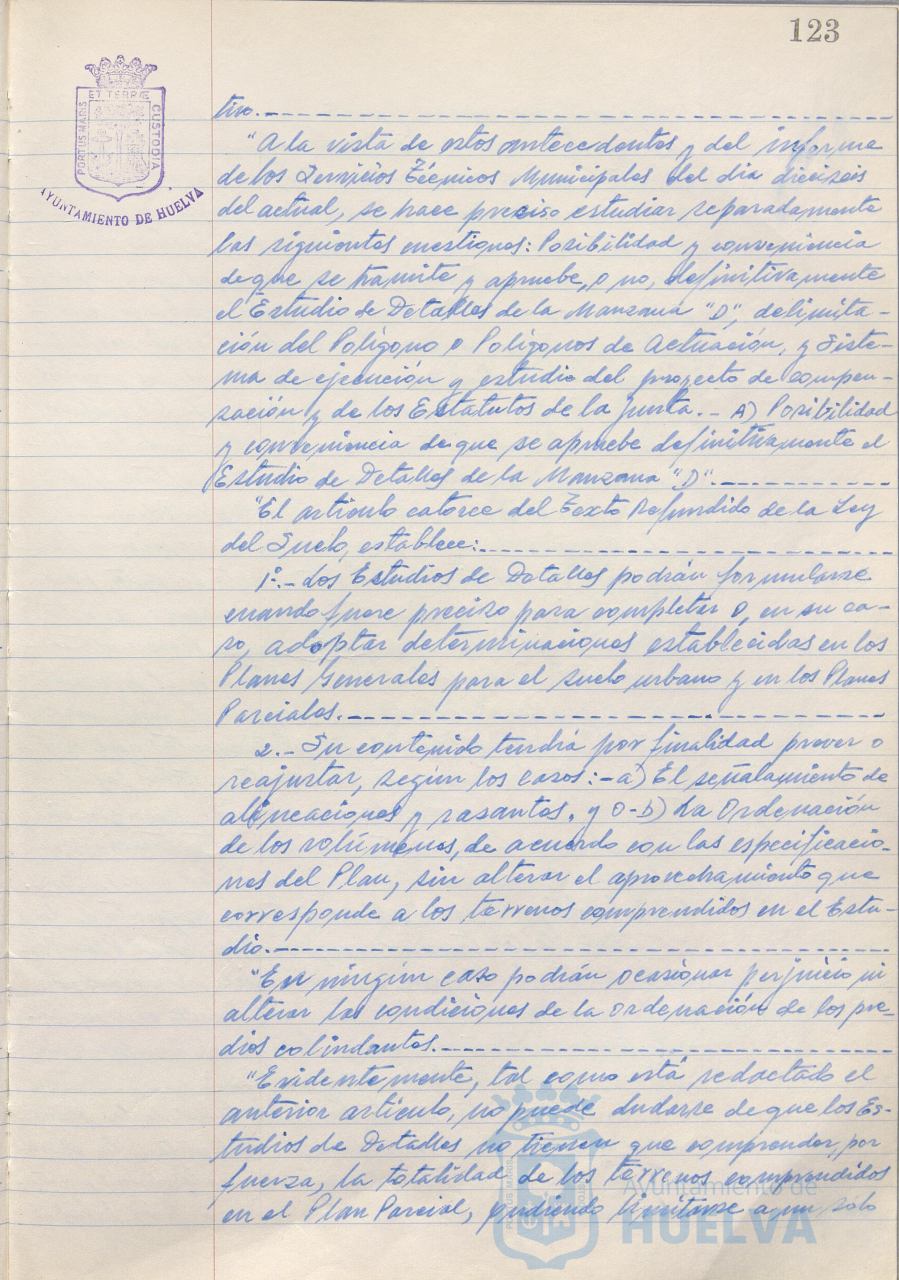 123
ET TERRÆ
PORTUS MARIS
CUSTODIA
AYUNTAMIENTO DE HUELVA
tivo.
"A la vista de estos antecedentes y del informe
de los Servicios Técnicos Municipales del día dieciseis
del actual, se hace preciso estudiar separadamente
las siguientes cuestiones: Posibilidad y conveniencia
de que se tramite y apruebe, o no, definitivamente
el Estudio de Detalles de la Manzana "D", delimita-
ción del Polígono o Polígonos de Actuación, y Siste-
ma de ejecución y estudio del proyecto de compen-
sación y de los Estatutos de la Junta.- A) Posibilidad
y conveniencia de que se apruebe definitivamente el
Estudio de Detalles de la Manzana "D".
"El artículo catorce del Texto Refundido de la Ley
del Suelo, establece:
1º.- Los Estudios de Detalles podrán formularse
cuando fuere preciso para completar o, en su ca-
so, adoptar determinaciones establecidas en los
Planes Generales para el suelo urbano y en los Planes
Parciales.
2.- Su contenido tendrá por finalidad prever o
reajustar, según los casos:- a) El señalamiento de
alineaciones y rasantes, y o- b) La Ordenación
de los volúmenes, de acuerdo con las especificacio-
nes del Plan, sin alterar el aprovechamiento que
corresponde a los terrenos comprendidos en el Estu-
dio.
"En ningún caso podrán ocasionar perjuicio ni
alterar las condiciones de la ordenación de los pre-
dios colindantes.
"Evidentemente, tal como está redactado el
anterior artículo, no puede dudarse de que los Es-
tudios de Detalles no tienen que comprender, por
fuerza, la totalidad de los terrenos comprendidos
en el Plan Parcial, pudiendo limitarse a un sólo
Ayuntamiento de
HUELVA